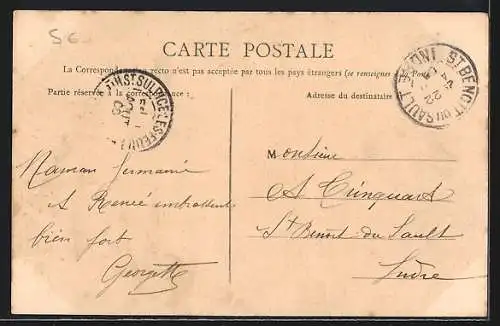 5c
CARTE POSTALE
La Correspondance au recto n'est pas acceptée par tous les pays étrangers (se renseigner à la Poste)
Partie réservée à la correspondance
Adresse du destinataire
ST SULPICE-LES-FEUILLES
ST BENOIT-DU-SAULT
Maman Germaine
& Renée embrassent
bien fort
Georgette
Monsieur
A.
St Benoit-du-Sault
Indre